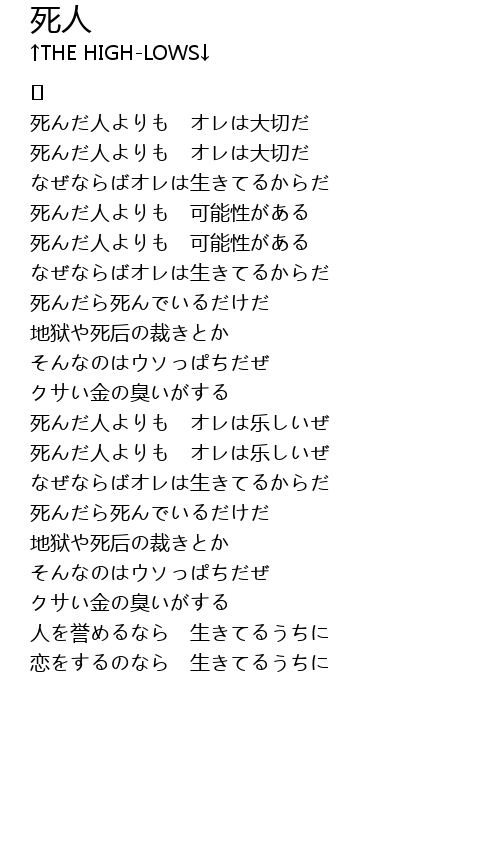 死人
↑THE HIGH-LOWS↓
[]
死んだ人よりも　オレは大切だ
死んだ人よりも　オレは大切だ
なぜならばオレは生きてるからだ
死んだ人よりも　可能性がある
死んだ人よりも　可能性がある
なぜならばオレは生きてるからだ
死んだら死んでいるだけだ
地狱や死后の裁きとか
そんなのはウソっぱちだぜ
クサい金の臭いがする
死んだ人よりも　オレは乐しいぜ
死んだ人よりも　オレは乐しいぜ
なぜならばオレは生きてるからだ
死んだら死んでいるだけだ
地狱や死后の裁きとか
そんなのはウソっぱちだぜ
クサい金の臭いがする
人を誉めるなら　生きてるうちに
恋をするのなら　生きてるうちに